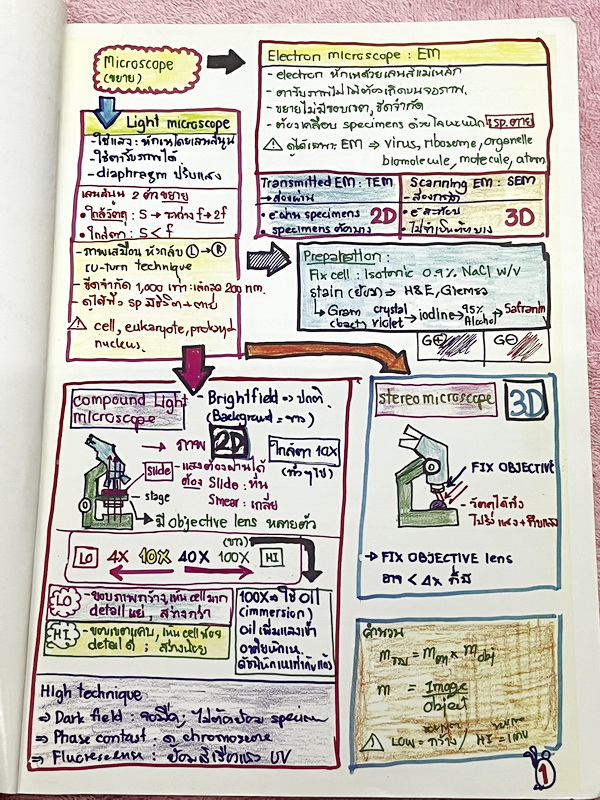 Microscope
(ขยาย)
Electron microscope : EM
- electron หักเหด้วยเลนส์แม่เหล็ก
- ตารับภาพไม่ได้ต้องเกิดบนจอภาพ
- ขยายไม่มีขอบเขต, ขีดจำกัด
- ต้องเคลือบ specimens ด้วยโลหะหนัก sp. ตาย
⚠ ดูได้เฉพาะ EM → virus, ribosome, organelle
biomolecule, molecule, atom
Light microscope
- ใช้แสง : หักเหโดยเลนส์นูน
- ใช้ตารับภาพได้
- diaphragm ปรับแสง
เลนส์นูน 2 ตัวขยาย
• ใกล้วัตถุ : S → ระหว่าง f → 2f
• ใกล้ตา : S < f
- ภาพเสมือน หัวกลับ L → R
technique
- ขีดจำกัด 1,000 เท่า : 200 nm.
- ดูได้ทั้ง sp มีชีวิต + ตาย
⚠ cell, eukaryote,
nucleus.
Transmitted EM : TEM
→ ส่องผ่าน
• e⁻ ผ่าน specimens 2D
• specimens ตัดบาง
Scanning EM : SEM
→ ส่องกราด
• e⁻ สะท้อน 3D
• ไม่จำเป็นตัดบาง
Preparation :
Fix cell : Isotonic 0.9% NaCl w/v
stain (ย้อม) → H&E, Giemsa
↳ Gram (bact) crystal violet → iodine → 95% Alcohol → Safranin
G⊕ G⊖
compound Light
microscope
- Brightfield → ปกติ
(Background = ขาว)
→ ภาพ 2D
ใกล้ตา 10X
(ทั่วๆไป)
Slide - แสงต้องผ่านได้
ต้อง Slide :
Smear : เกลี่ย
stage
→ มี objective lens หลายตัว
(ขาว)
LO 4X 10X 40X 100X HI
LO - ขอบภาพกว้าง, เห็น cell มาก
detail แย่, สว่างกว่า
HI - ขอบเขตแคบ, เห็น cell น้อย
detail ดี ; สว่างน้อย
100X → ใช้ oil
(immersion)
oil เพิ่มแสงเข้า
ดัชนีหักเหเท่ากับแก้ว
High technique
⇒ Dark field : จอมืด ; ไม่ต้องย้อม specimen
⇒ Phase contast : ดู chromosome
⇒ Fluorescense : ย้อมสีเรืองแสง UV
stereo microscope 3D
FIX OBJECTIVE
- วัตถุได้ทั้ง
โปร่งแสง + ทึบแสง
→ FIX OBJECTIVE lens
อาจ < 4x ก็มี
คำนวณ
m รวม = m ตา × m obj
m = Image
object
⚠ LOW = กว้าง / HI = แคบ
1